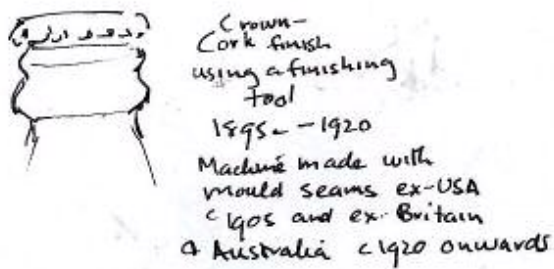 Crown-
Cork finish
using a finishing
tool
1895c - 1920
Machine made with
mould seams ex-USA
c 1905 and ex-Britain
& Australia c1920 onwards